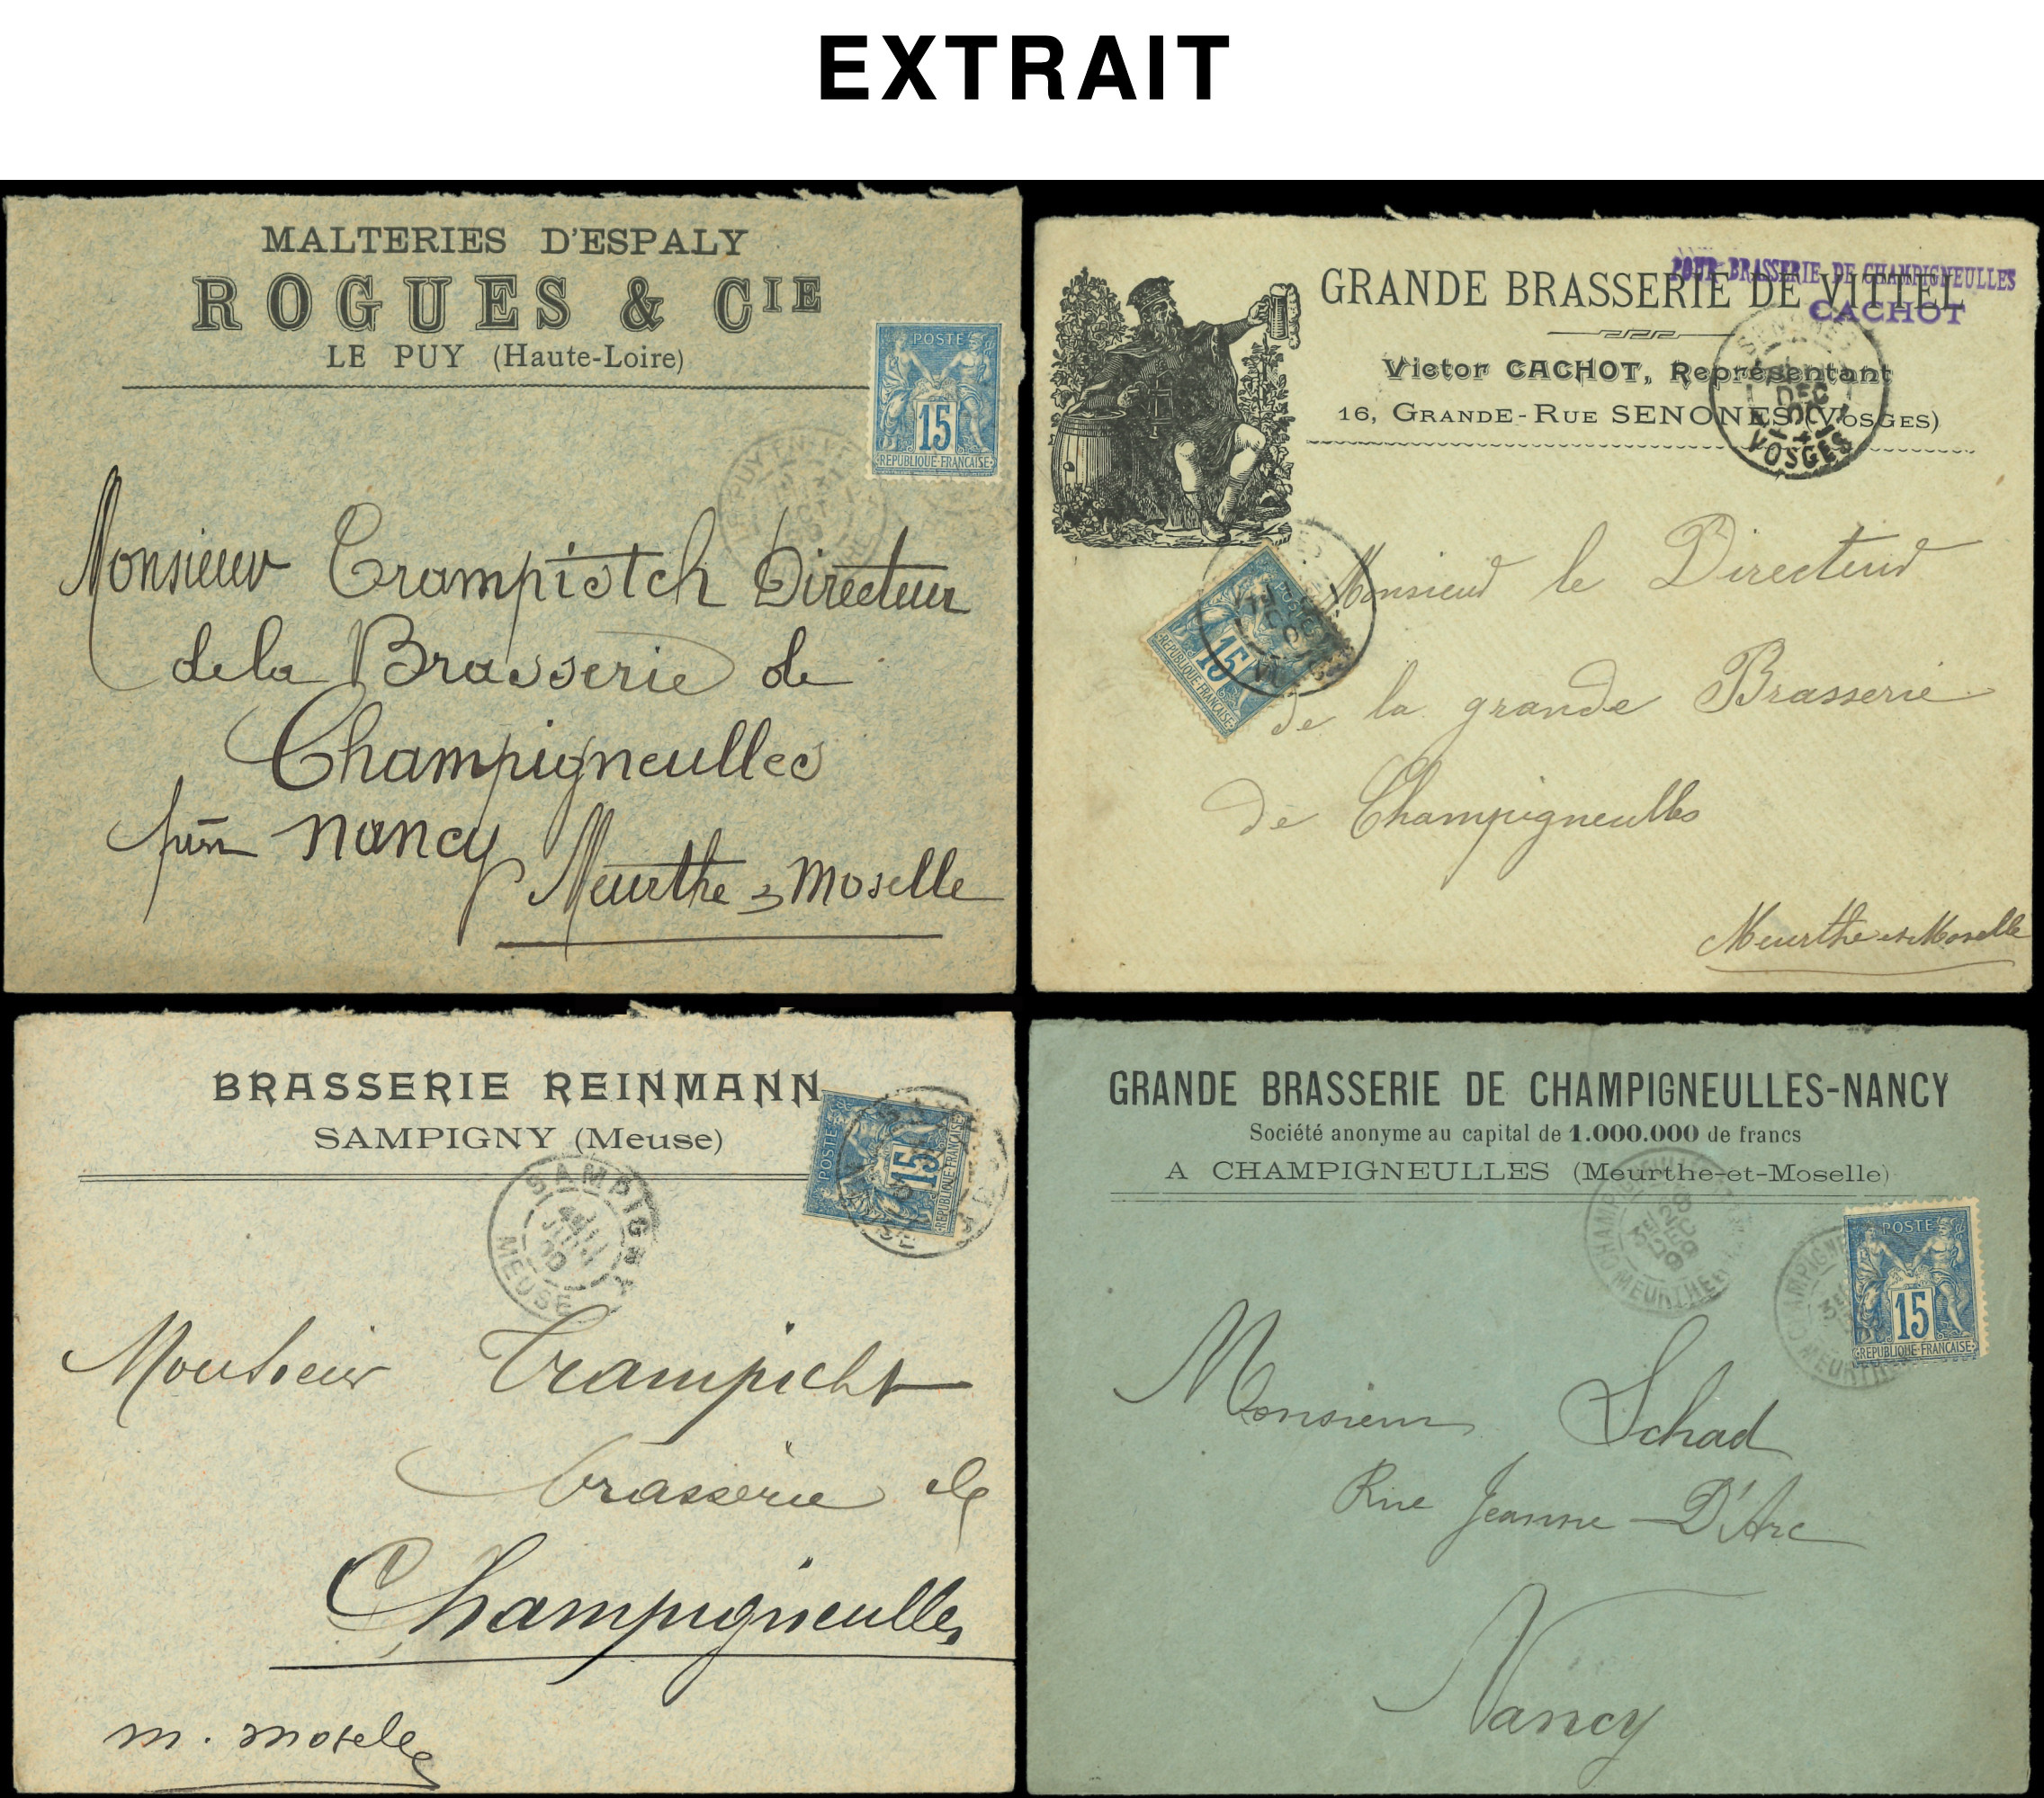 EXTRAIT
MALTERIES D'ESPALY
ROGUES & CIE
LE PUY (Haute-Loire)
POSTE
15
REPUBLIQUE FRANÇAISE
Monsieur Trampistch Directeur
de la Brasserie de
Champigneulles
par Nancy
Meurthe & Moselle
POUR BRASSERIE DE CHAMPIGNEULLES
CACHOT
GRANDE BRASSERIE DE VITTEL
Victor CACHOT, Représentant
16, GRANDE-RUE SENONES (VOSGES)
DEC
VOSGES
POSTE
15
REPUBLIQUE FRANÇAISE
Monsieur le Directeur
de la grande Brasserie
de Champigneulles
Meurthe et Moselle
BRASSERIE REINMANN
SAMPIGNY (Meuse)
POSTE
15
REPUBLIQUE FRANÇAISE
SAMPIGNY
MEUSE
Monsieur Trampicht
brasserie de
Champigneulles
M. Moselle
GRANDE BRASSERIE DE CHAMPIGNEULLES-NANCY
Société anonyme au capital de 1.000.000 de francs
A CHAMPIGNEULLES (Meurthe-et-Moselle)
28
DEC
99
POSTE
15
REPUBLIQUE FRANÇAISE
Monsieur Schad
Rue Jeanne-D'Arc
Nancy